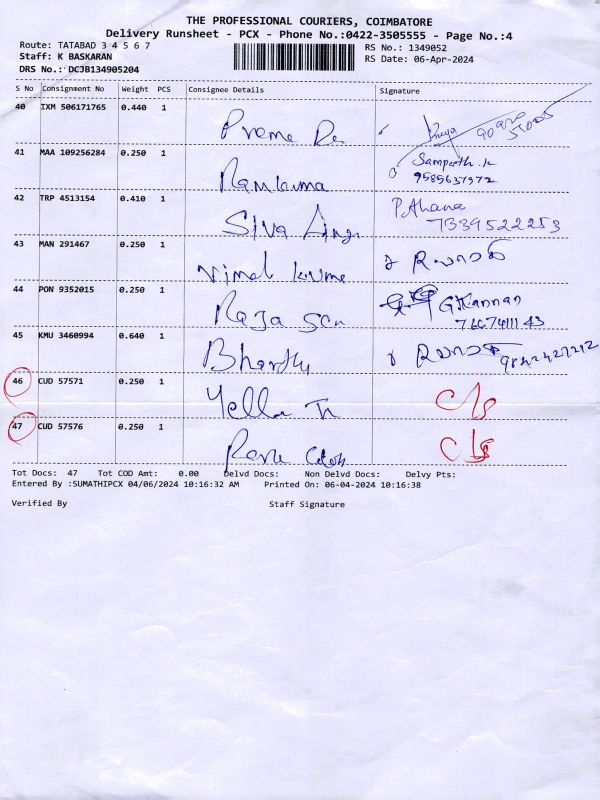 THE PROFESSIONAL COURIERS, COIMBATORE
Delivery Runsheet - PCX - Phone No.:0422-3505555 - Page No.:4
Route: TATABAD 3 4 5 6 7
RS No.: 1349052
Staff: K BASKARAN
RS Date: 06-Apr-2024
DRS No.: DCJB134905204
S No Consignment No Weight PCS Consignee Details Signature
40 IXM 506171765 0.440 1
Preme De Priya
41 MAA 109256284 0.250 1 Sampath.K
Ramkuma 9585637572
42 TRP 4513154 0.410 1 P.Ahana
Siva 7339522253
43 MAN 291467 0.250 1
Vimal Kume
44 PON 9352015 0.250 1 G.Kannan
Raja Sen
45 KMU 3460994 0.640 1
Bharthy
46 CUD 57571 0.250 1
Yella Tr C/s
47 CUD 57576 0.250 1 C/s
Tot Docs: 47 Tot COD Amt: 0.00 Delvd Docs: Non Delvd Docs: Delvy Pts:
Entered By :SUMATHIPCX 04/06/2024 10:16:32 AM Printed On: 06-04-2024 10:16:38
Verified By Staff Signature